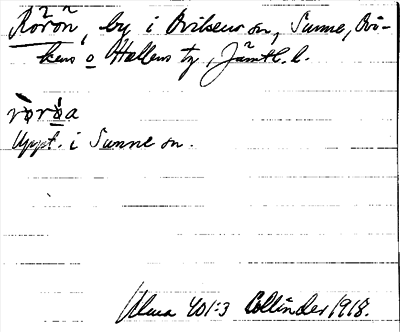 Rörön, by i Ovikens sn, Sunne, Ovi-
kens o Hallens tg, Jämtl. l.
rὸrὸa
Uppt. i Sunne sn.
Ulma 401:3 Collinder 1918.